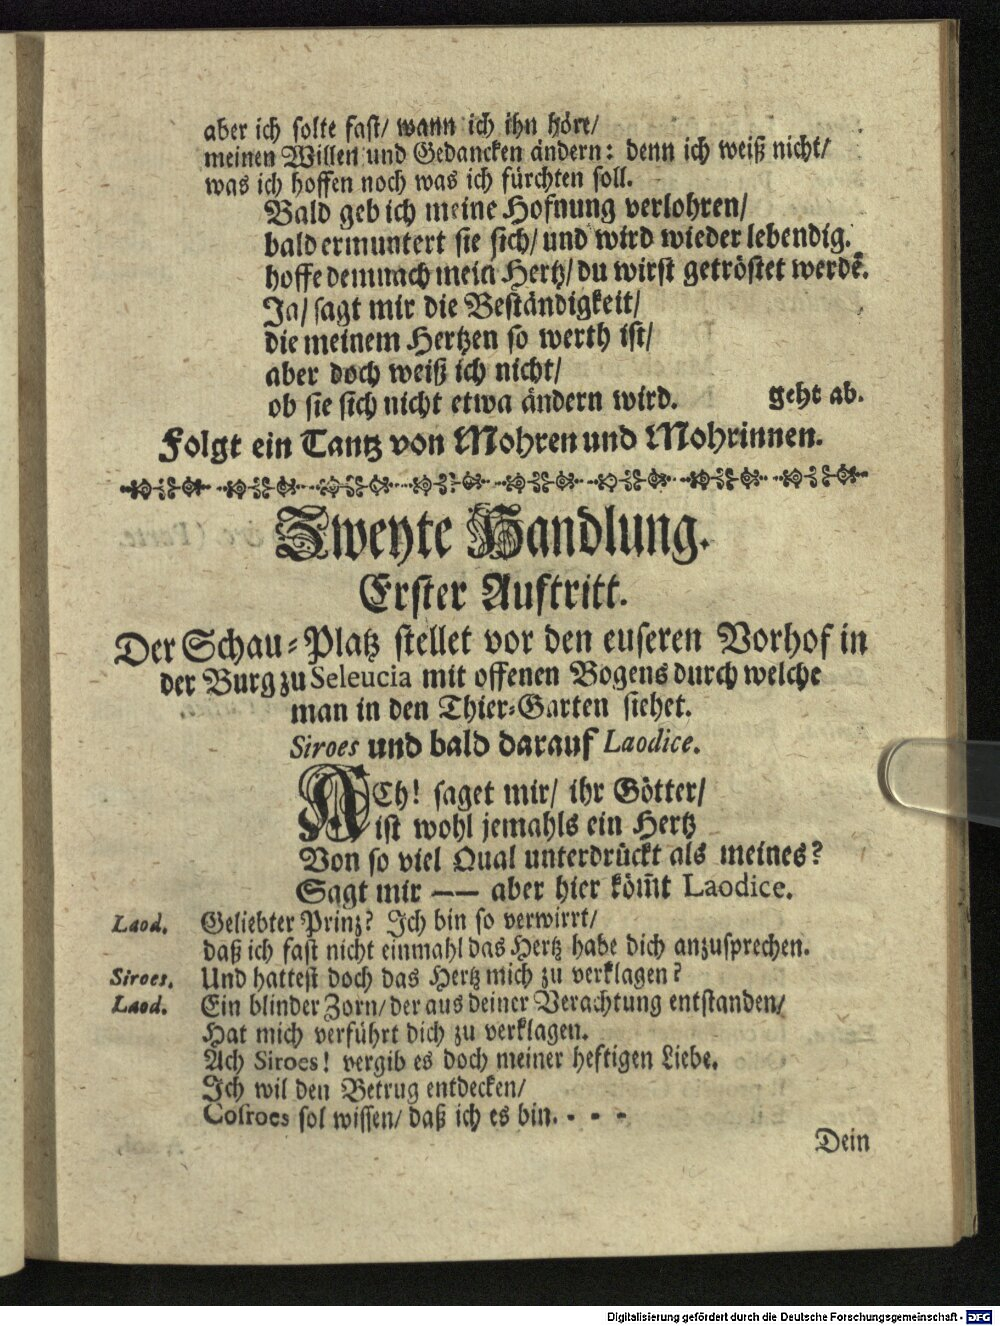 aber ich solte fast/ wann ich ihn höre/
meinen Willen und Gedancken ändern: denn ich weiß nicht/
was ich hoffen noch was ich fürchten soll.
Bald geb ich meine Hofnung verlohren/
bald ermuntert sie sich/ und wird wieder lebendig.
hoffe demnach mein Hertz/ du wirst getröstet werdē.
Ja/ sagt mir die Beständigkeit/
die meinem Hertzen so werth ist/
aber doch weiß ich nicht/
ob sie sich nicht etwa ändern wird. geht ab.
Folgt ein Tantz von Mohren und Mohrinnen.
Zweyte Handlung.
Erster Auftritt.
Der Schau-Platz stellet vor den euseren Vorhof in
der Burg zu Seleucia mit offenen Bogens durch welche
man in den Thier-Garten siehet.
Siroes und bald darauf Laodice.
ACh! saget mir/ ihr Götter/
ist wohl jemahls ein Hertz
Von so viel Qual unterdrückt als meines?
Sagt mir —— aber hier köm̄t Laodice.
Laod. Geliebter Prinz? Ich bin so verwirrt/
daß ich fast nicht einmahl das Hertz habe dich anzusprechen.
Siroes. Und hattest doch das Hertz mich zu verklagen?
Laod. Ein blinder Zorn/ der aus deiner Verachtung entstanden/
Hat mich verführt dich zu verklagen.
Ach Siroes! vergib es doch meiner heftigen Liebe.
Ich wil den Betrug entdecken/
Cosroes sol wissen/ daß ich es bin. - - -
Dein
Digitalisierung gefördert durch die Deutsche Forschungsgemeinschaft - DFG